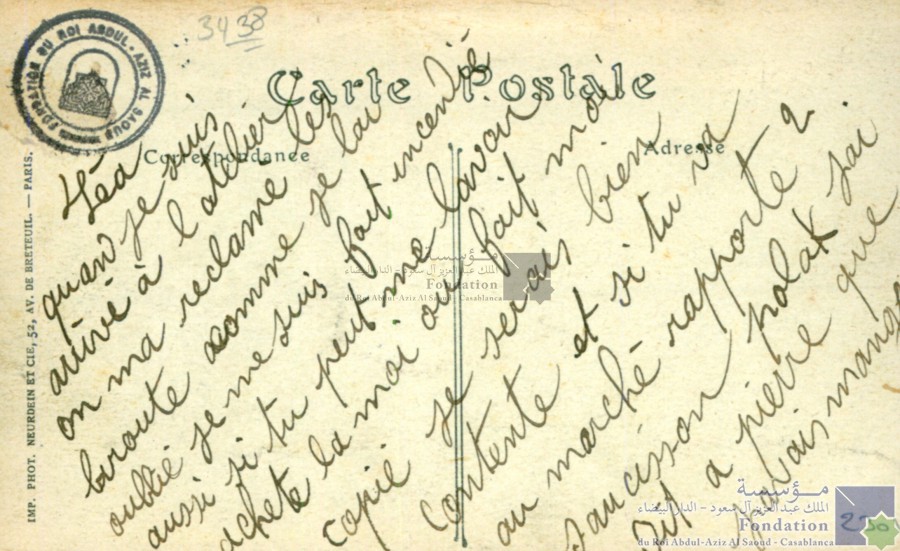 3438
FONDATION DU ROI ABDUL-AZIZ AL SAOUD
Carte Postale
Correspondance
Adresse
IMP. PHOT. NEURDEIN ET CIE, 52, AV. DE BRETEUIL. — PARIS.
Léa
quand je suis
arrivé à l atelier
on ma reclame les
broute comme je lai
oublié je me suis fait incendié
aussi si tu peut me lavoir
achete la moi ou fait moi
copié je serais bien
contente et si tu va
au marché rapporte 2
saucisson polak jai
dit a pierre que
javais mangé
مؤسسة
الملك عبد العزيز آل سعود – الدار البيضاء
Fondation
du Roi Abdul-Aziz Al Saoud - Casablanca
مؤسسة
الملك عبد العزيز آل سعود – الدار البيضاء
Fondation
du Roi Abdul-Aziz Al Saoud - Casablanca